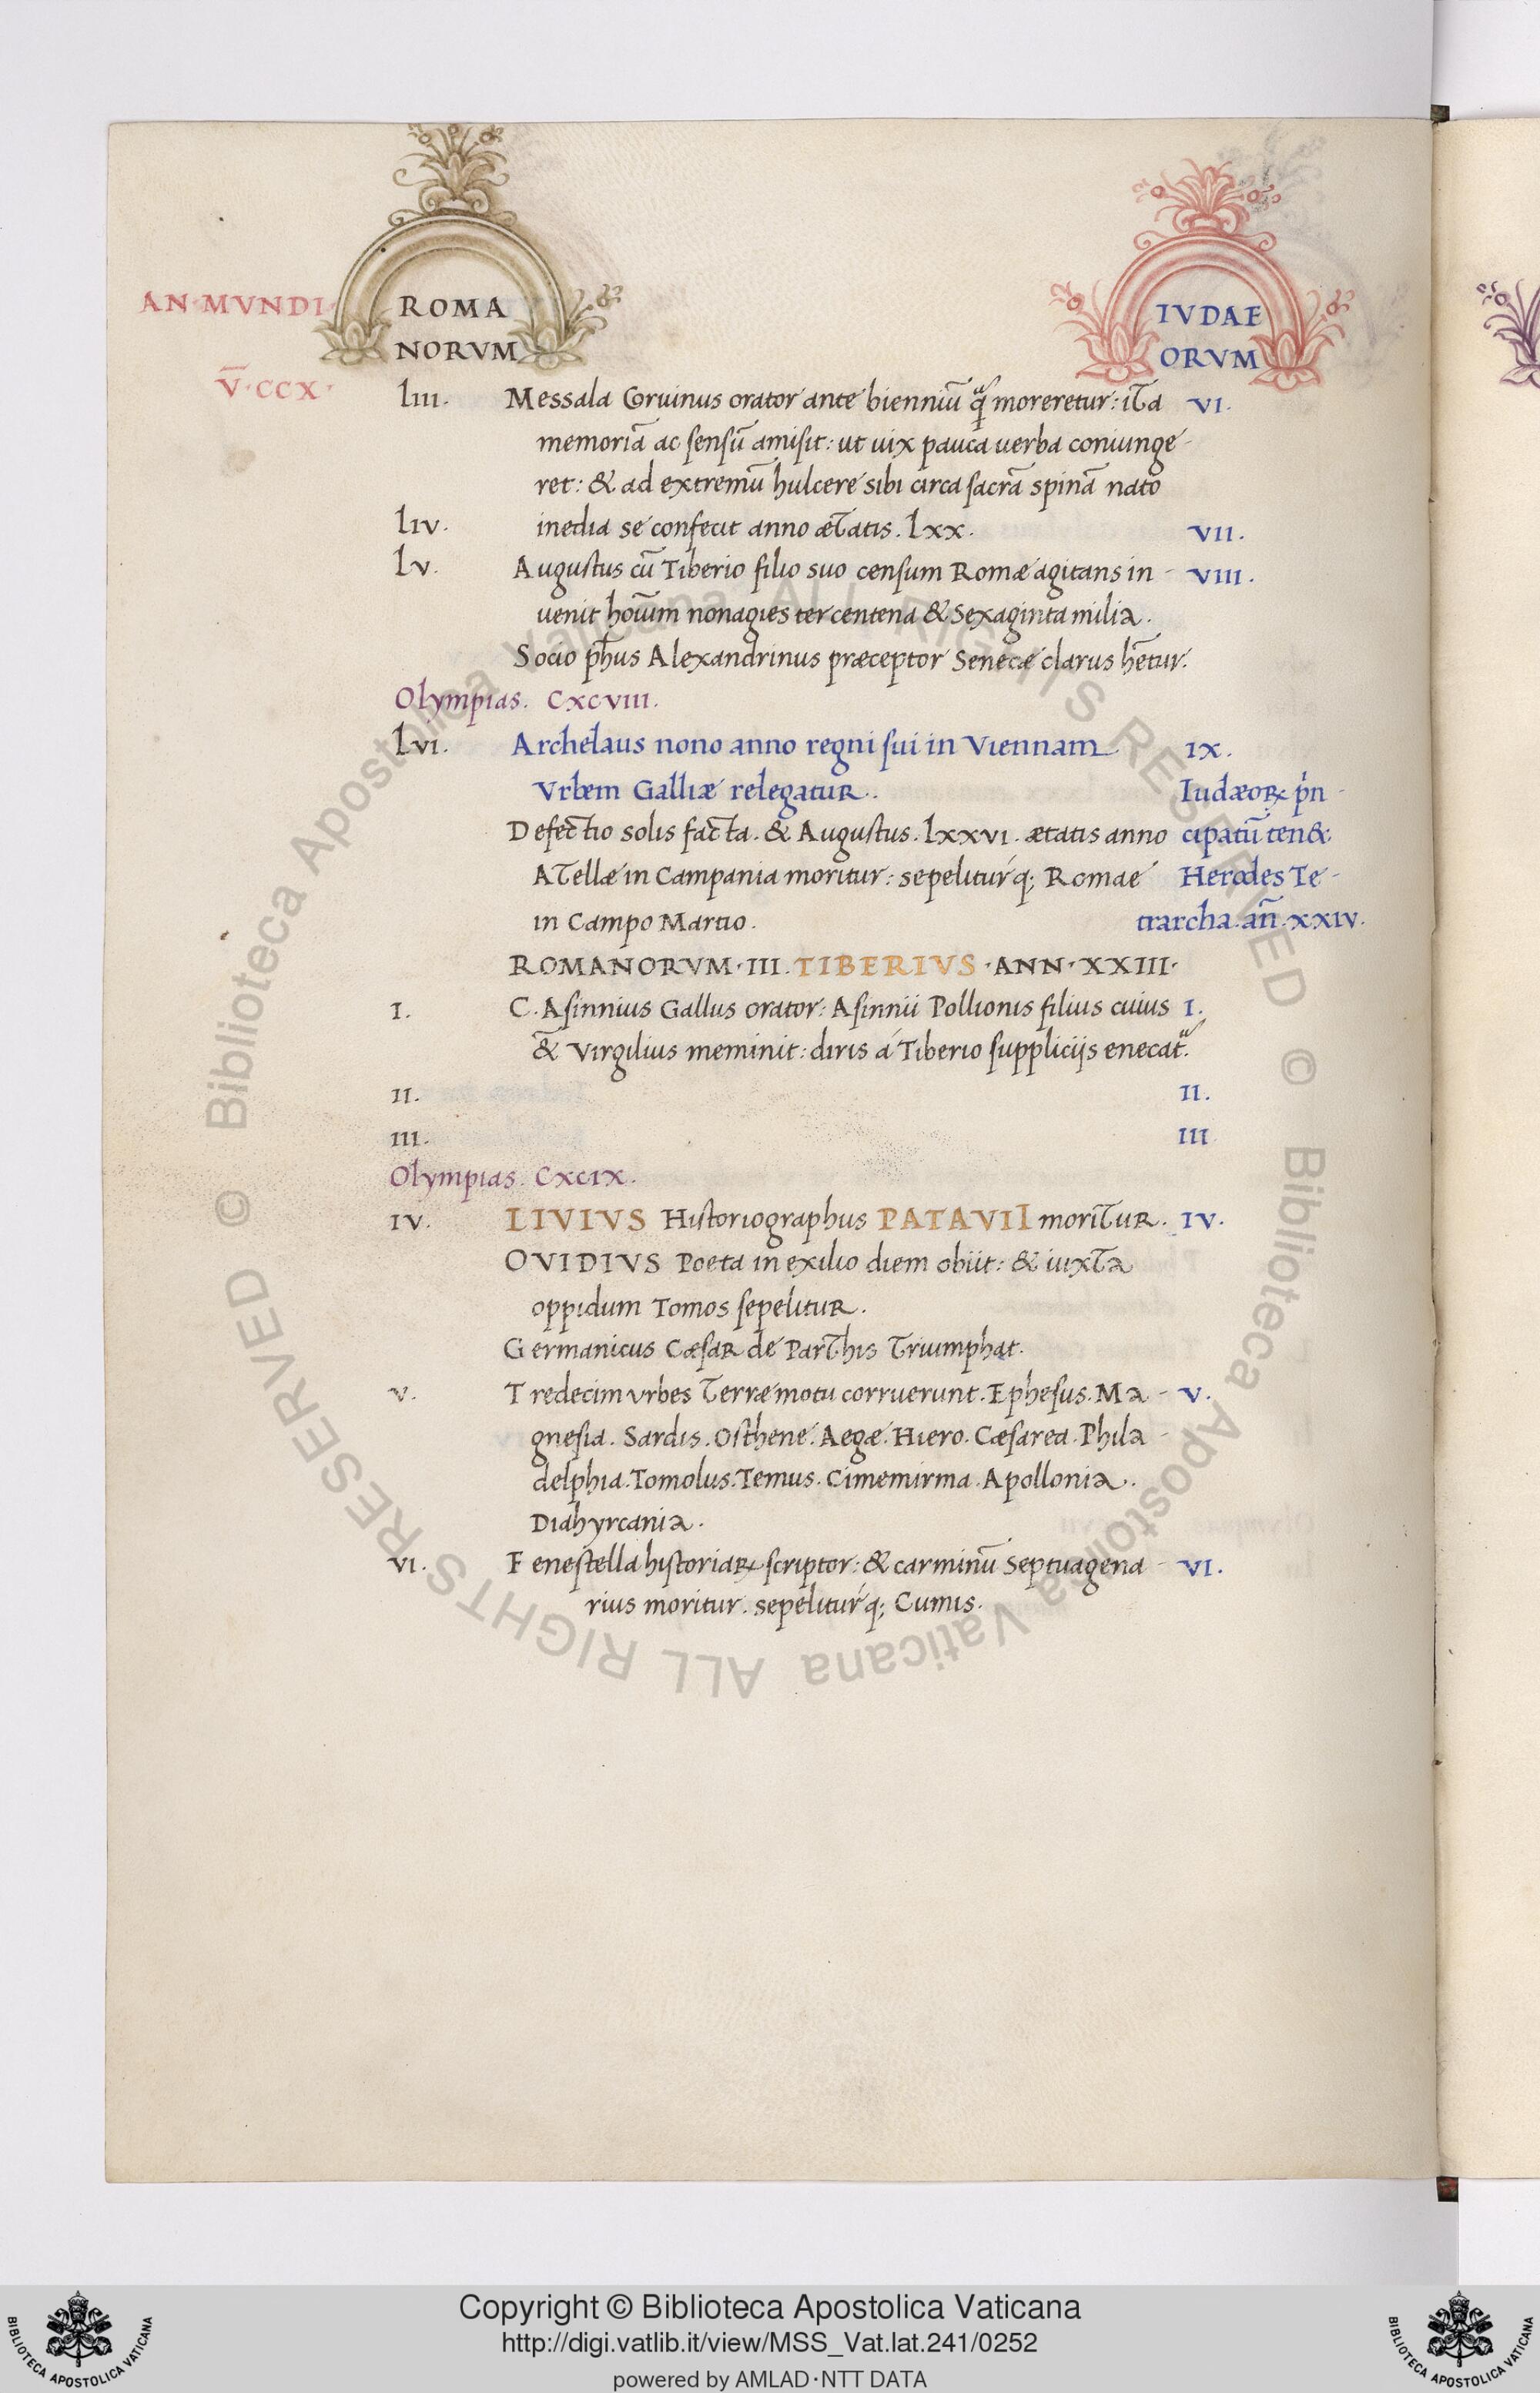 AN·MVNDI·
V̅·CCX·
ROMA
NORVM
IVDAE
ORVM
LIII. Messala Coruinus orator ante bienniū q̃ moreretur: ita VI.
memoriā ac sensū amisit: ut uix pauca uerba coniunge-
ret: & ad extremū hulcere sibi circa sacrā spinā nato
LIV. inedia se confecit anno ætatis. Lxx. VII.
LV. Augustus cū Tiberio filio suo censum Romæ agitans in- VIII.
uenit hoı̄um nonagies ter centena & sexaginta milia.
Socio ph̄us Alexandrinus præceptor Senecæ clarus hētur.
Olympias. CXCVIII.
LVI. Archelaus nono anno regni sui in Viennam IX.
Vrbem Galliæ relegatur. Iudæoꝝ pṅ-
Defectio solis facta. & Augustus. LXXVI. ætatis anno cipatū ten&.
Atellæ in Campania moritur: sepeliturq; Romae Herodes Te-
in Campo Martio. trarcha. an̄. xxiv.
ROMANORVM·III. TIBERIVS·ANN·XXIII·
I. C. Asinnius Gallus orator: Asinnii Pollionis filius cuius I.
& Virgilius meminit: diris á Tiberio supplicijs enecat᷑.
II. II.
III. III
Olympias. CXCIX.
IV. LIVIVS Historiographus PATAVII moritur. IV.
OVIDIVS Poeta in exilio diem obiit: & iuxta
oppidum Tomos sepelitur.
Germanicus Cæsar de Parthis Triumphat.
V. Tredecim vrbes Terræ motu corruerunt. Ephesus. Ma- V.
gnesia. Sardis. Osthene. Aegæ. Hiero. Cæsarea. Phila-
delphia. Tomolus. Temus. Cimemirma. Apollonia.
Diahyrcania.
VI. Fenestella historiaꝝ scriptor: & carminū Septuagena- VI.
rius moritur. sepeliturq; Cumis.
© Biblioteca Apostolica Vaticana ALL RIGHTS RESERVED © Biblioteca Apostolica Vaticana ALL RIGHTS RESERVED
Copyright © Biblioteca Apostolica Vaticana
http://digi.vatlib.it/view/MSS_Vat.lat.241/0252
powered by AMLAD·NTT DATA
BIBLIOTECA APOSTOLICA VATICANA
BIBLIOTECA APOSTOLICA VATICANA